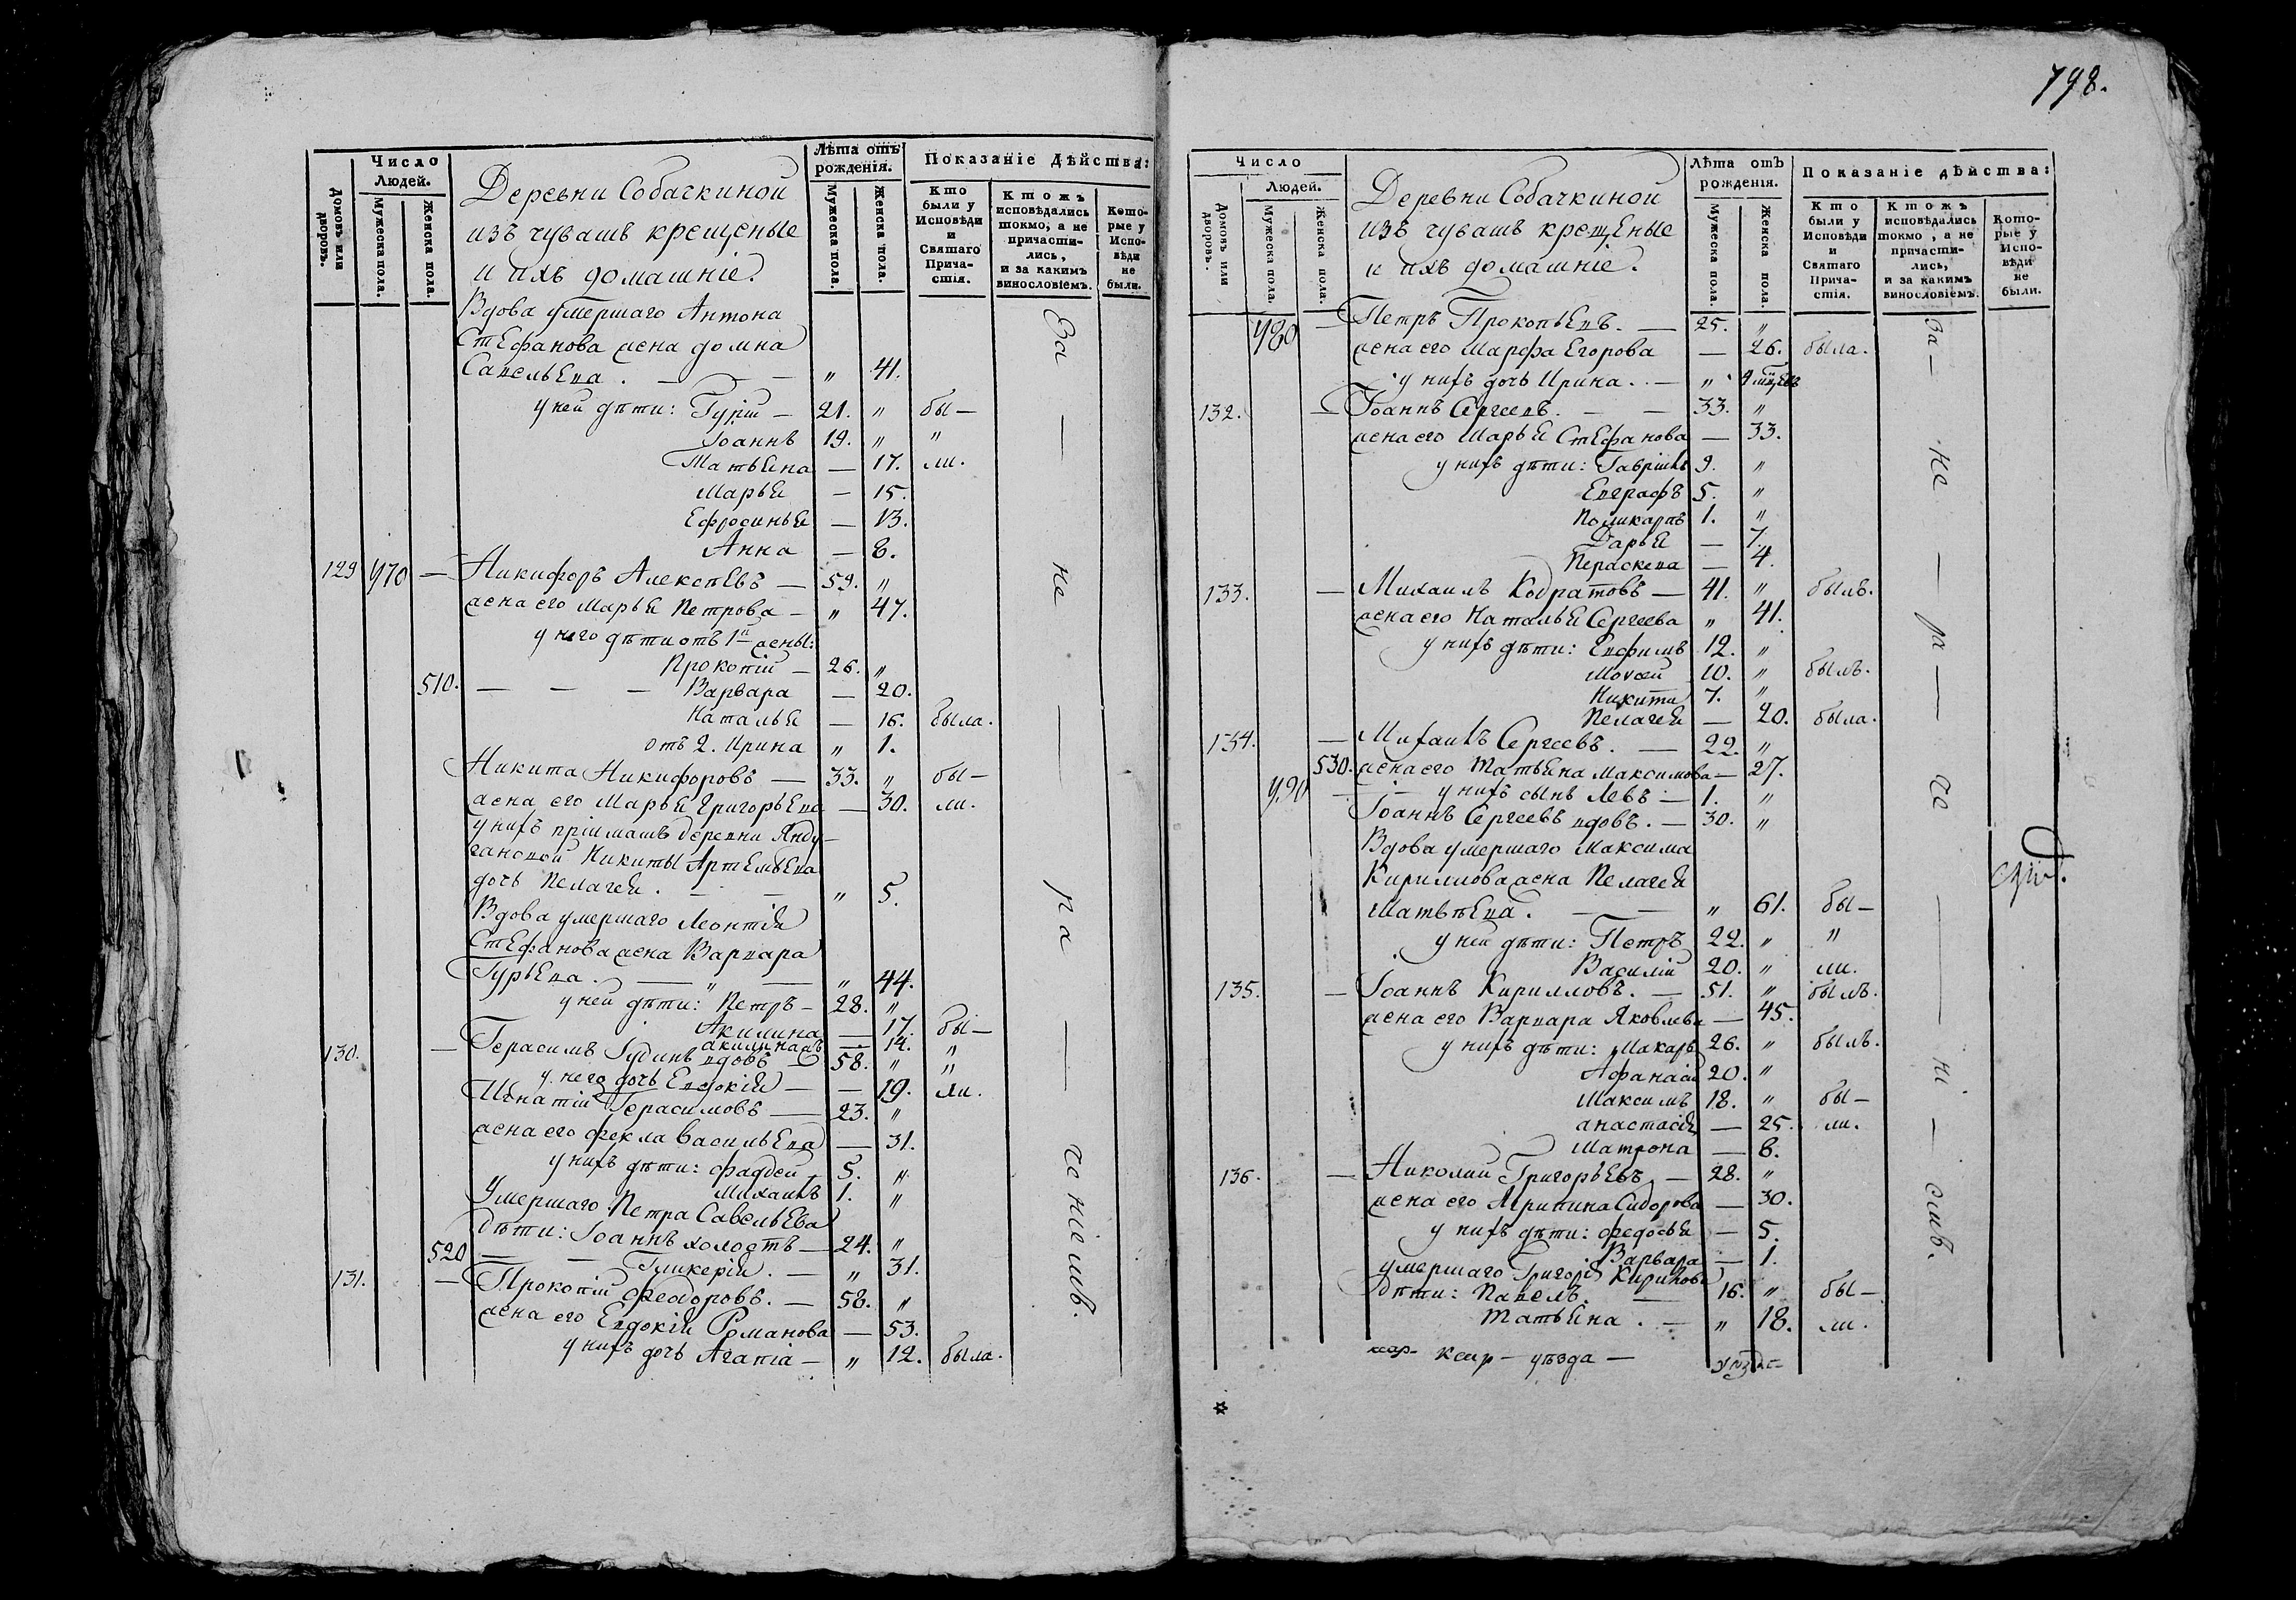 798.
Число
Людей.
Домовъ или дворовъ.
Мужеска пола.
Женска пола.
Деревни Собачкиной
изъ чувашъ крещеные
и ихъ домашніе.
Лѣта отъ
рожденія.
Мужеска пола.
Женска пола.
Показаніе дѣйства:
Кто были у Исповѣди и Святаго Причастія.
Ктожъ исповѣдались токмо, а не причастились, и за какимъ винословіемъ.
Которые у Исповѣди не были.
Вдова умершаго Антона
Стефанова жена домна
Савельева . — — „ 41.
у ней дѣти: Гурій — 21. „ бы—
Іоаннъ 19. „ „
Татьяна — 17. ли.
Марья — 15.
Ефросинья — 13.
Анна — 8.
129 970 — Никифоръ Алексѣевъ — 59. „
жена его Марья Петрова — „ 47.
у него дѣти отъ 1й жены:
Прокопій — 26. „
510. — — — Варвара — 20.
Наталья — 16. была.
отъ 2. Ирина „ 1.
Никита Никифоровъ — 33. „ бы—
жена его Марья Григорьева — 30. ли.
у нихъ пріимашъ деревни Янду-
гановой Никиты Артемьева
дочь Пелагея . — — „ 5.
Вдова умершаго Леонтія
Стефанова жена Варвара
Гурьева . — „ — „ 44.
у ней дѣти: Петръ — 28. „
Акилина — 17. бы—
— 14. „
130. — Герасимъ Гудинъ вдовъ — 58. „ „
у него дочь Евдокія — — 19. ли.
Игнатій Герасимовъ — 23. „
жена его Фекла Васильева — 31.
у нихъ дѣти: Фаддей 5. „
Михаилъ 1. „
Умершаго Петра Савельева
дѣти: Іоаннъ холостъ — 24. „
520 — — Гликерія . — „ 31.
131. — Прокопій Феодоровъ. — 58. „
жена его Евдокія Романова — 53.
у нихъ дочь Агапіа — „ 12. была.
За — не — ра — че ніемъ.
Число
Людей.
Домовъ или дворовъ.
Мужеска пола.
Женска пола.
Деревни Собачкиной
изъ чувашъ крещеные
и ихъ домашніе.
Лѣта отъ
рожденія.
Мужеска пола.
Женска пола.
Показаніе дѣйства:
Кто были у Исповѣди и Святаго Причастія.
Ктожъ исповѣдались токмо, а не причастились, и за какимъ винословіемъ.
Которые у Исповѣди не были.
980 — Петръ Прокопьевъ. — 25. „
жена его Марфа Егорова — 26. была.
у нихъ дочь Ирина. . — „ 4
132. — Іоаннъ Сергеевъ. — — 33. „
жена его Марья Стефанова — 33.
у нихъ дѣти: Гавріилъ 9. „
Евграфъ 5. „
Поликарпъ 1. „
Дарья — 7.
Параскева — 4.
133. — Михаилъ Кодратовъ — 41. „ былъ.
жена его Наталья Сергеева „ 41.
у нихъ дѣти: Евфимъ 12. „
Мочей 10. „ былъ.
Никита 7. „
Пелагея — 20. была.
134. — Михаилъ Сергеевъ . — 22. „
530. жена его Татьяна Максимова — 27.
990 — — у нихъ сынъ Левъ — 1. „
Іоаннъ Сергеевъ вдовъ. — 30. „
Вдова умершаго Максима
Кириллова жена Пелагея
Матвѣева . — — „ 61. бы—
у ней дѣти: Петръ 22. „ „
Василій 20. „ ли.
135. — Іоаннъ Кирилловъ. — 51. „ былъ.
жена его Варвара Яковлева — 45.
у нихъ дѣти: Макаръ 26. „ былъ.
Афанасій 20. „
Максимъ 18. „ бы—
анастасія — 25. ли.
Матрона — 8.
136. — Николай Григорьевъ. — 28. „
жена его Агрипина Сидорова — 30.
у нихъ дѣти: Федосья — 5.
Варвара — 1.
умершаго Григорія Кирилова
дѣти: Павелъ. — 16. „ бы—
Татьяна . — „ 18. ли.
За — не — ра — че — ні — емъ.
уѣзда —